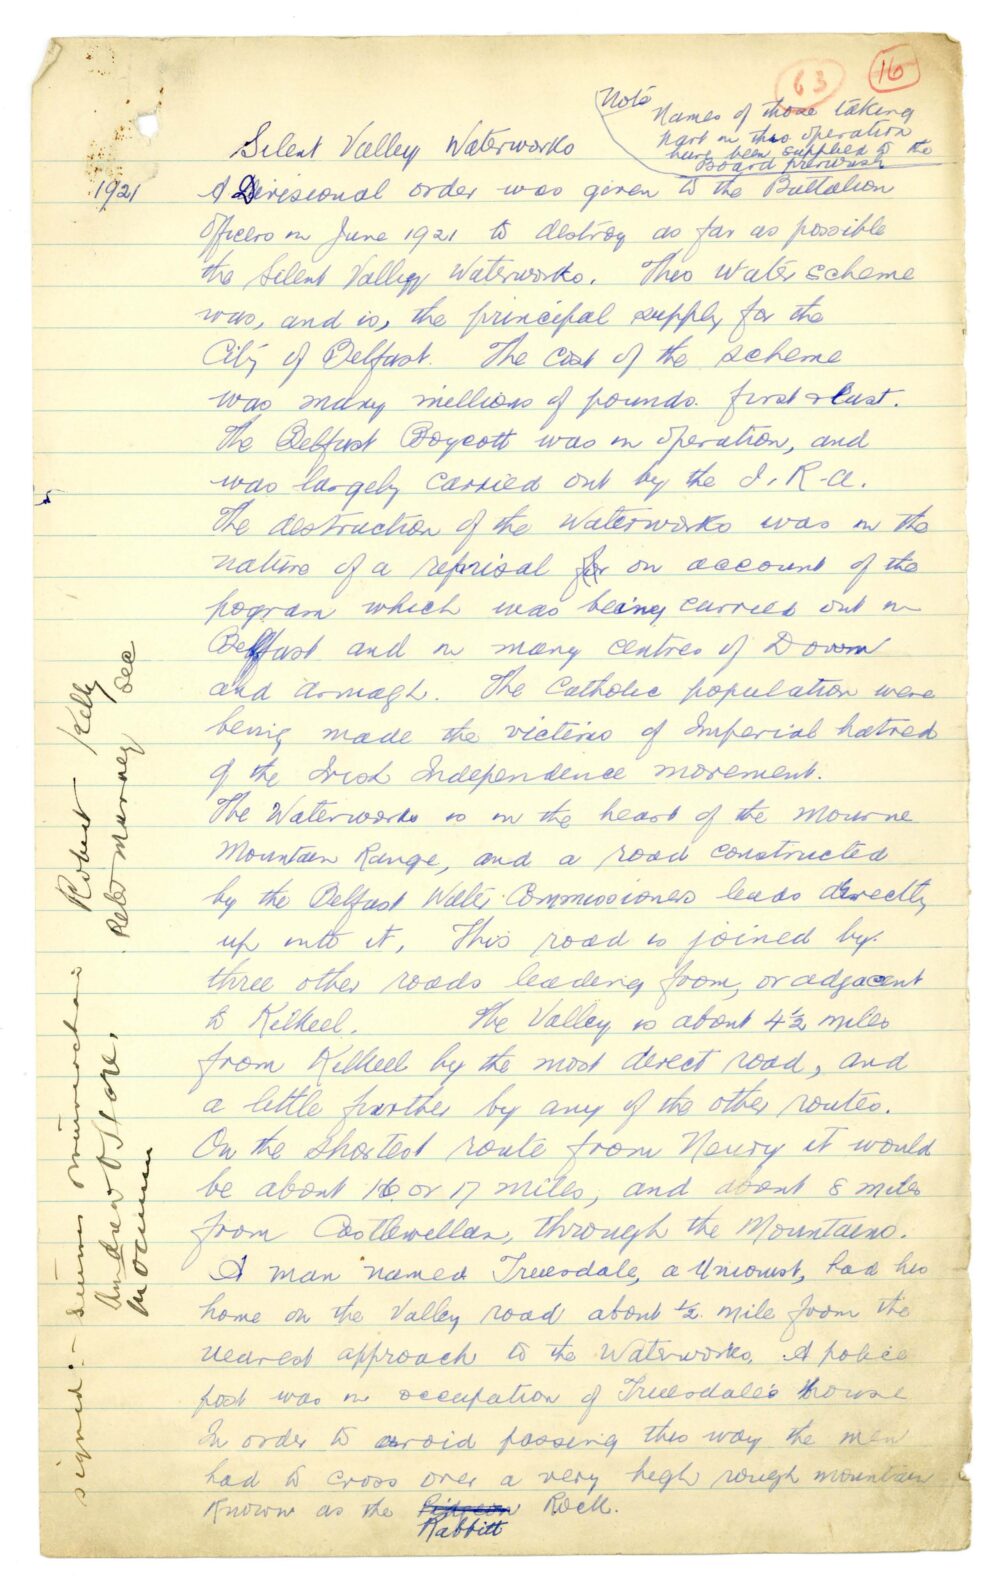 63
16
Note
Names of those taking
part in this operation
have been supplied to the
Board previously
Silent Valley Waterworks
1921
A Divisional order was given to the Battalion
Officers in June 1921 to destroy as far as possible
the Silent Valley Waterworks. This water scheme
was, and is, the principal supply for the
City of Belfast. The cost of the scheme
was many millions of pounds. first & last.
The Belfast Boycott was in operation, and
was largely carried out by the I. R. A.
The destruction of the Waterworks was in the
nature of a reprisal for on account of the
pogram which was being carried out in
Belfast and in many centres of Down
and Armagh. The Catholic population were
being made the victims of Imperial hatred
of the Irish Independence movement.
The Waterworks is in the heart of the Mourne
Mountain Range, and a road constructed
by the Belfast Water Commissioners leads directly
up into it. This road is joined by
three other roads leading from, or adjacent
to Kilkeel. The Valley is about 4½ miles
from Kilkeel by the most direct road, and
a little further by any of the other routes.
On the shortest route from Newry it would
be about 16 or 17 miles, and about 8 miles
from Castlewellan, through the Mountains.
A man named Truesdale, a Unionist, had his
home on the Valley road about ½ mile from the
nearest approach to the Waterworks. A police
post was in occupation of Truesdale's house
In order to avoid passing this way the men
had to cross over a very high rough mountain
known as the Pidgeon Rock.
Rabbitt
signed:-
Robert Kelly
Peter Murney Sec
Andrew O'Hare,